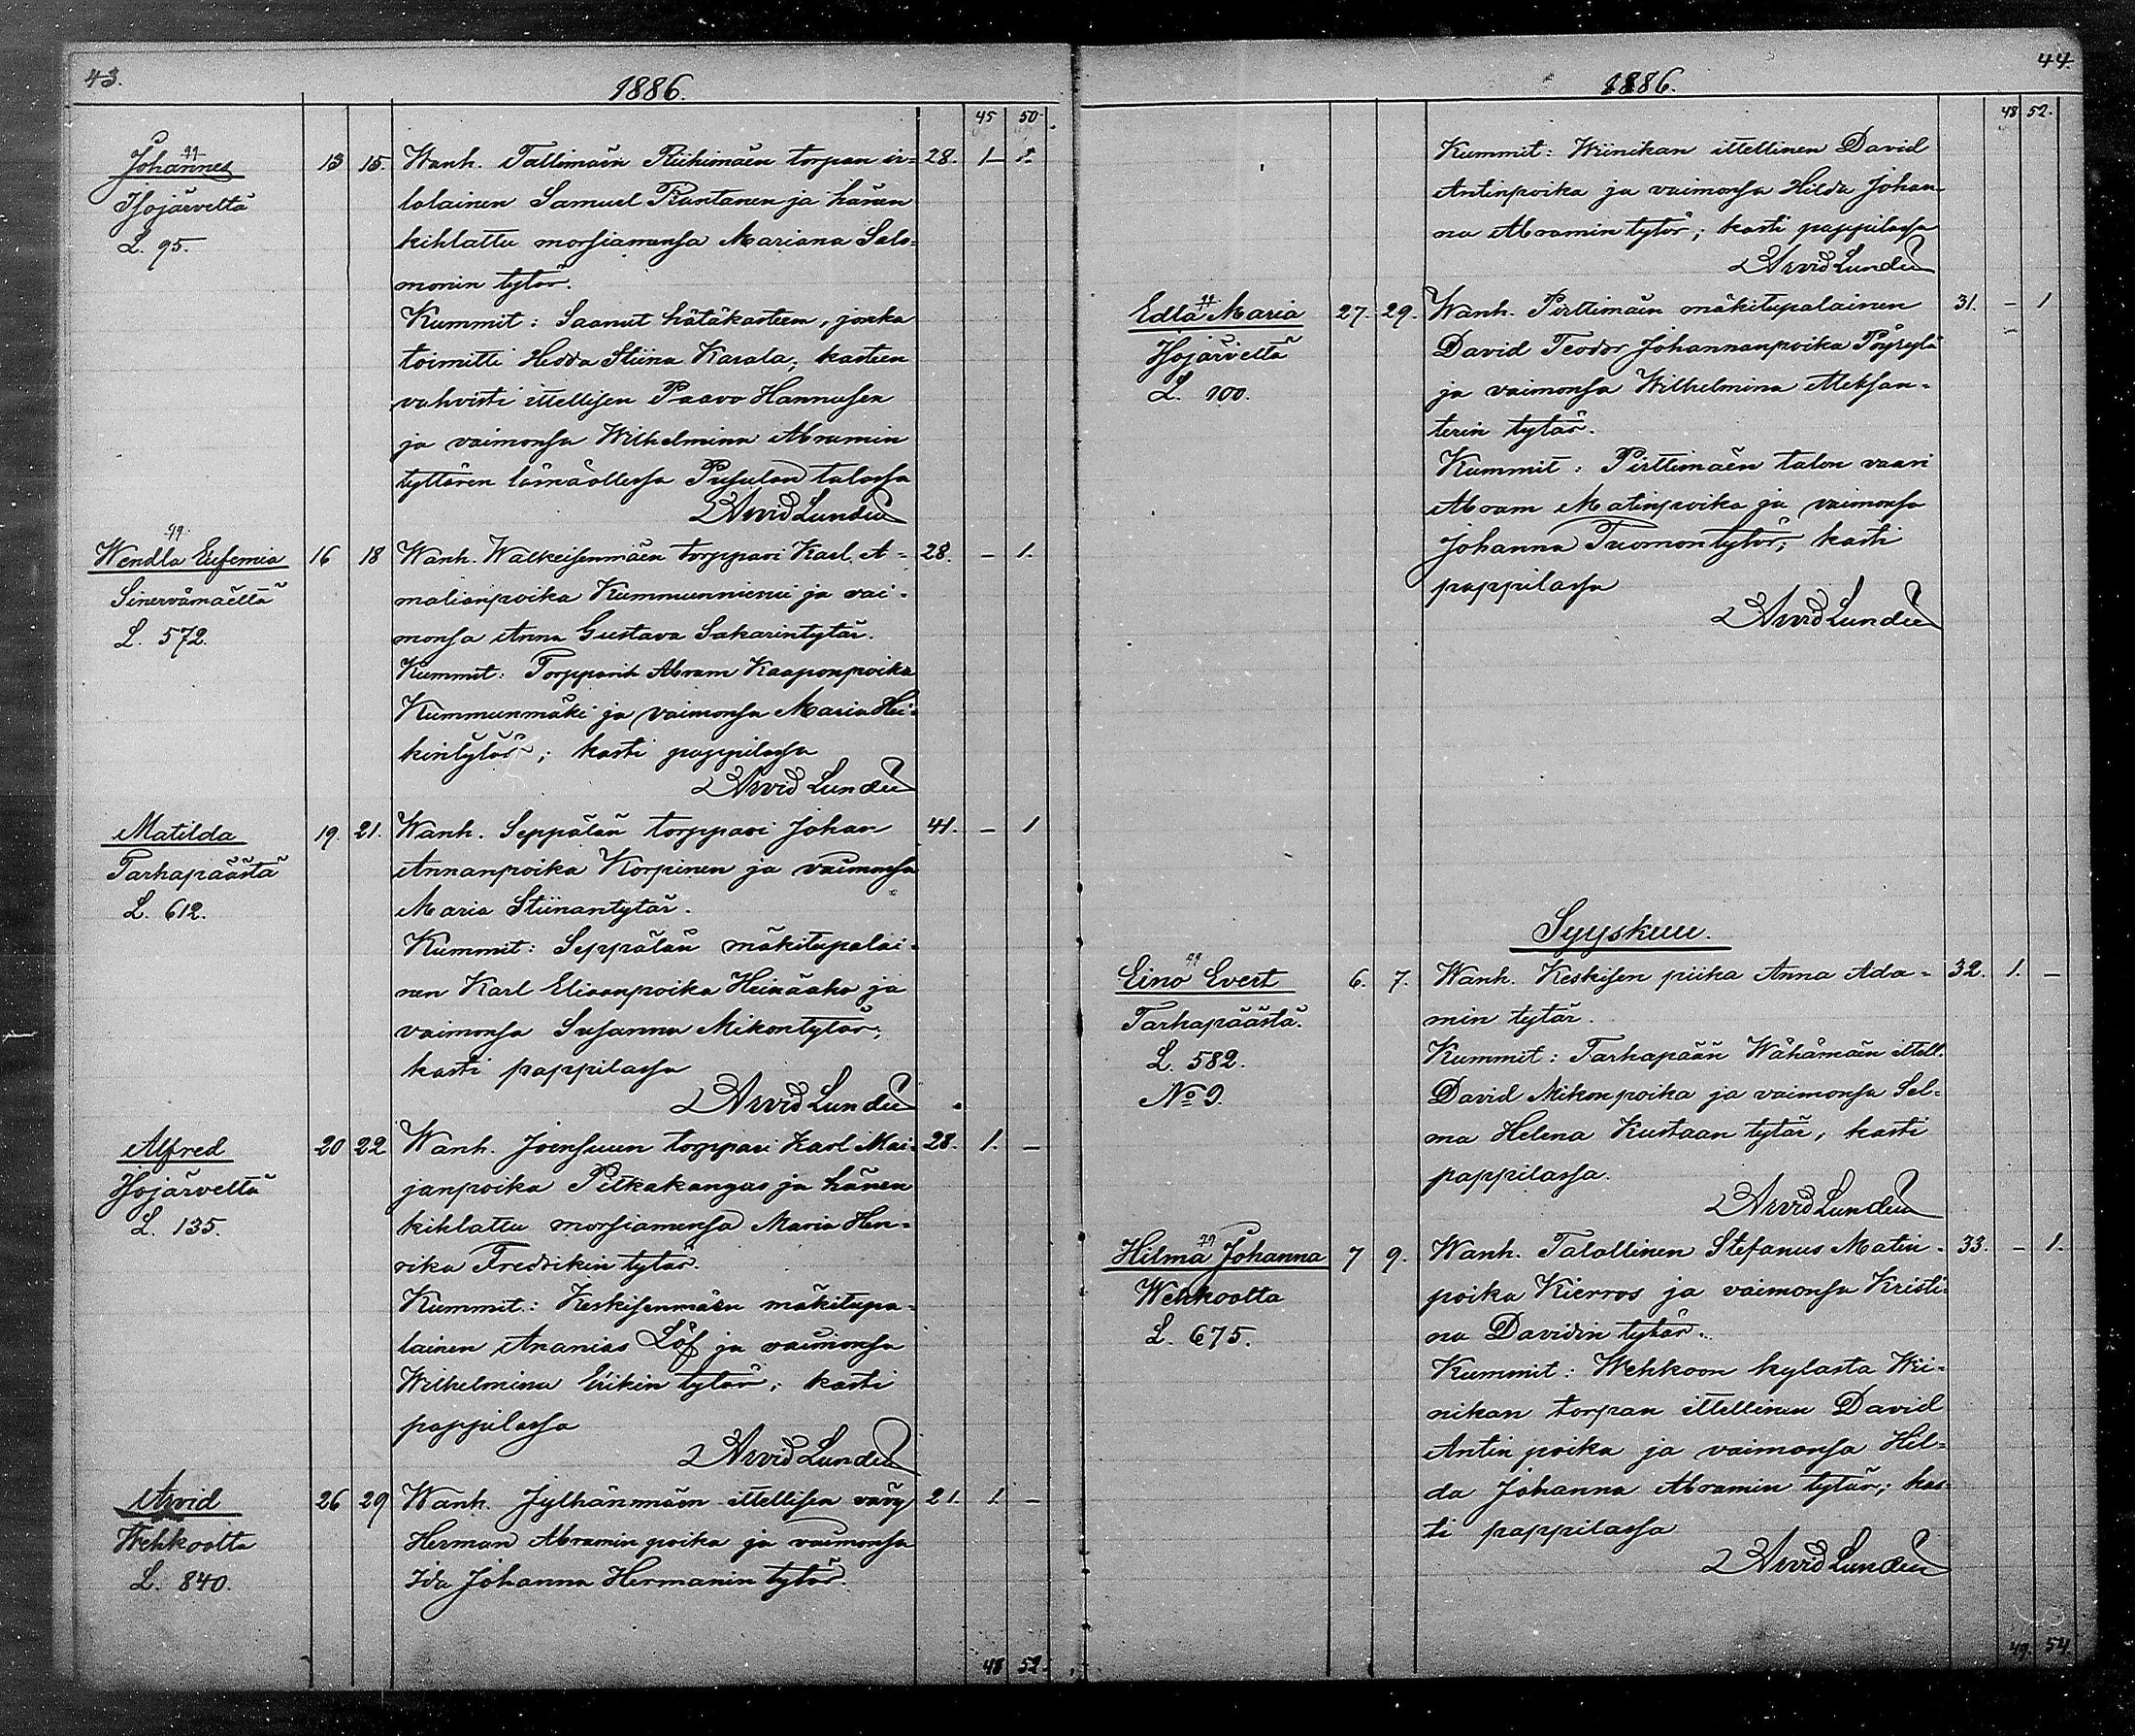 43.
1886.
45 50.
Johannes 13 15. Wanh. Tallimäen Riihimäen torpan ir= 28. 1 –
Isojärveltä lolainen Samuel Rantanen ja hänen
L. 95. kihlattu morsiamensa Mariana Salo=
monin tytär.
Kummit: Saanut hätäkasteen, jonka
toimitti Hedda Stiina Karala, kasteen
vahvisti ittellisen Paavo Hannusen
ja vaimonsa Wilhelmina Abramin
tyttären läsnäollessa Pusulan talossa
Arvid Lundén
Wendla Eufemia 16 18 Wanh. Walkeisenmäen torppari Karl A= 28. – 1.
Sinervämäeltä malianpoika Kummunniemi ja vai=
L. 572. monsa Anna Gustava Sakarintytär.
Kummit: Torpparit Abram Kaaponpoika
Kummunmäki ja vaimonsa Maria Hei=
kintytär; kasti pappilassa
Arvid Lundén
Matilda 19. 21. Wanh. Seppälän torppari Johan 41. – 1
Tarhapäästä Annanpoika Korpinen ja vaimonsa
L. 612. Maria Stiinantytär.
Kummit: Seppälän mäkitupalai=
nen Karl Eliaanpoika Heinäaho ja
vaimonsa Susanna Mikontytär;
kasti pappilassa
Arvid Lundén
Alfred 20 22 Wanh. Joensuun torppari Karl Mai= 28. 1. –
Isojärveltä janpoika Pitkäkangas ja hänen
L. 135. kihlattu morsiamensa Maria Hen=
rika Fredrikin tytär.
Kummit: Keskisenmäen mäkitupa=
lainen Ananias Löf ja vaimonsa
Wilhelmina Erikin tytär; kasti
pappilassa
Arvid Lundén
Arvid 26 29 Wanh. Jylhänmäen ittellisen vävy 21. 1. –
Wehkoolta Herman Abramin poika ja vaimonsa
L. 840. Ida Johanna Hermanin tytär.
48 52.
44.
1886.
48 52.
Kummit: Wiinikan ittellinen David
Antinpoika ja vaimonsa Hilda Johan=
na Abramin tytär; kasti pappilassa
Arvid Lundén
Edla Maria 27. 29. Wanh. Pirttimäen mäkitupalainen 31. – 1
Isojärveltä David Teodor Johannanpoika Pöyrylä
L. 100. ja vaimonsa Wilhelmina Aleksan=
terin tytär.
Kummit: Pirttimäen talon vaari
Abram Matinpoika ja vaimonsa
Johanna Tuomon tytär; kasti
pappilassa
Arvid Lundén
Syyskuu.
Eino Evert 6. 7. Wanh. Keskisen piika Anna Ada= 32. 1. –
Tarhapäästä. min tytär.
L. 582. Kummit: Tarhapään Wähämäen ittell.
No 9. David Mikonpoika ja vaimonsa Sel=
ma Helena Kustaan tytär, kasti
pappilassa.
Arvid Lundén
Hilma Johanna 7 9. Wanh. Talollinen Stefanus Matin= 33. – 1.
Wehkoolta poika Kierros ja vaimonsa Kristi=
L. 675. na Davidin tytär.
Kummit: Wehkoon kylästa Wii=
nikan torpan ittellinen David
Antin poika ja vaimonsa Hil=
da Johanna Abramin tytär; kas=
ti pappilassa
Arvid Lundén
49. 54.